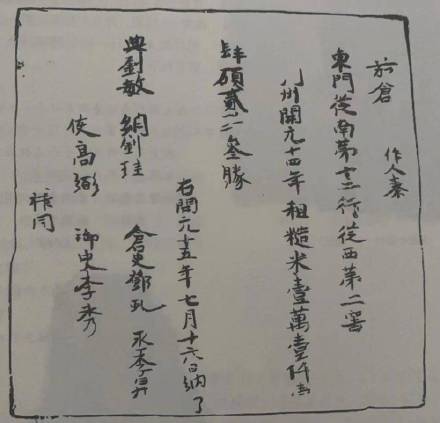 倉 作人秦
東門從南第行從西第二窖
州開元十四年租糙米壹萬壹仟
肆碩貳斗叁勝
右開元十五年七月十六日納了
典劉敏 綱劉珪 倉史鄧 丞李昇
使高弼 御史李秀